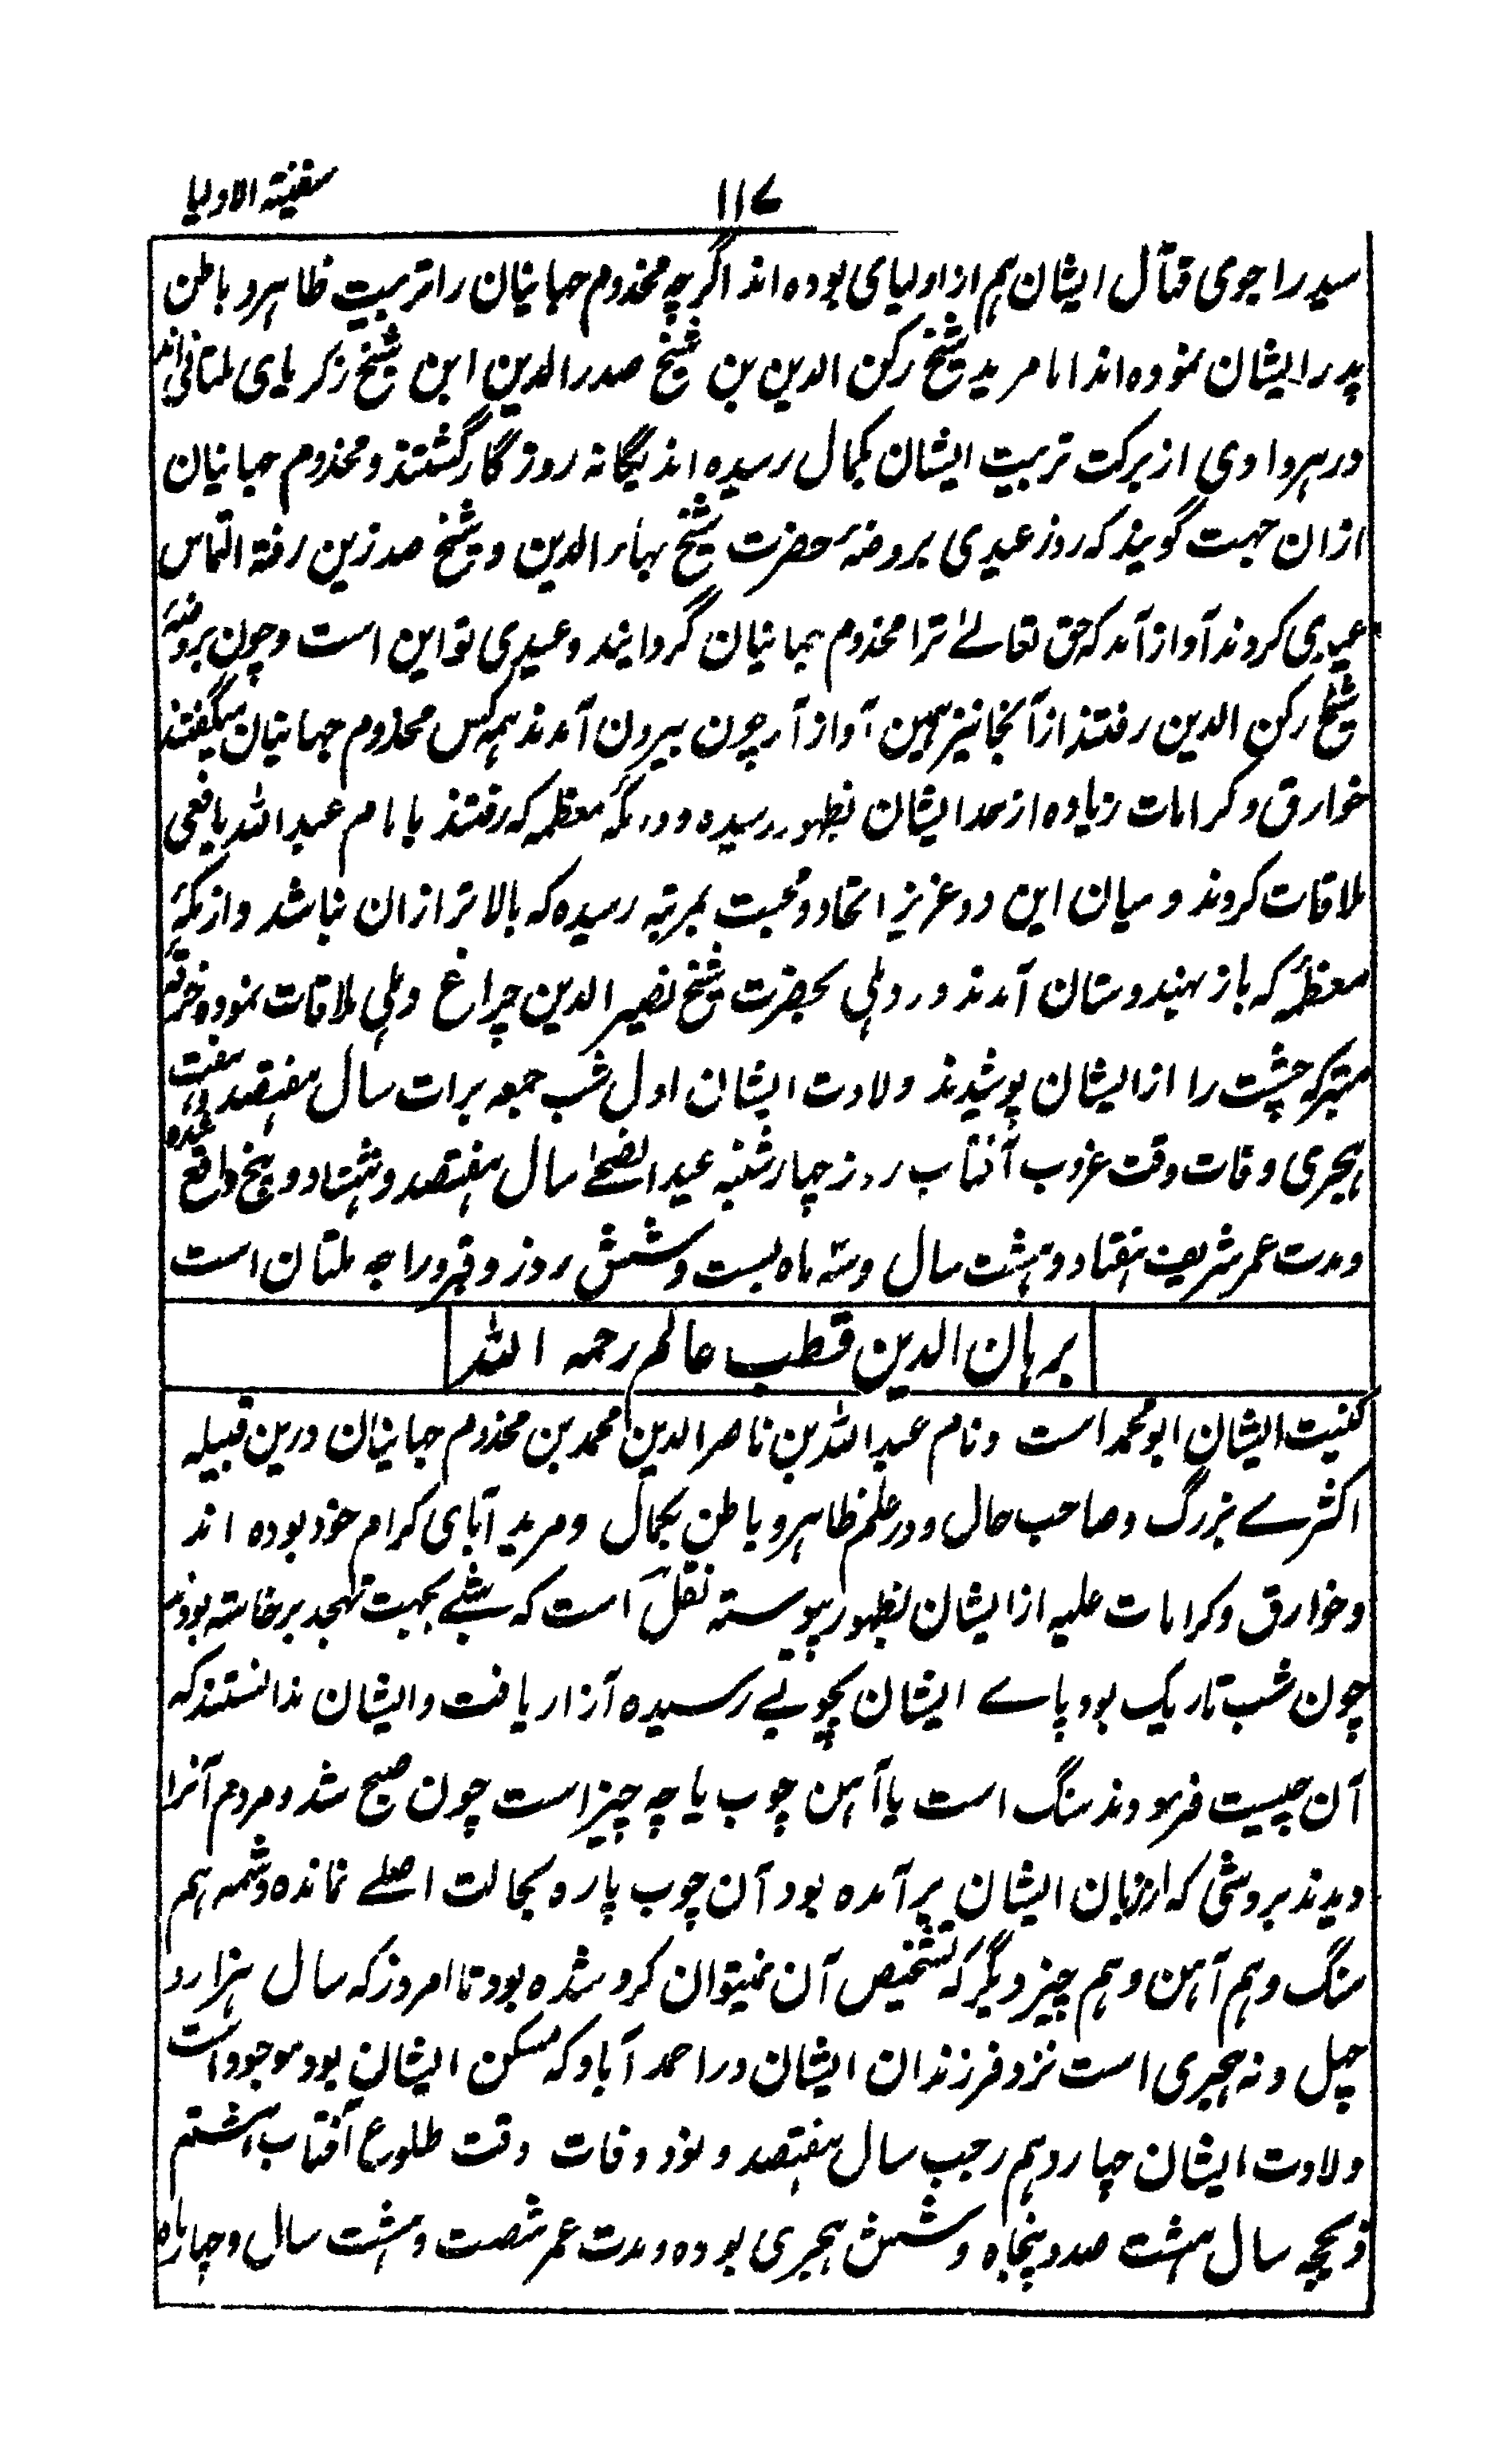 ۱۱۷ سفینة الاولیا
سید راجوی قتال ایشان ہم از اولیای بوده اند اگرچه مخدوم جہانیان را تربیت ظاہر و باطن
پدر ایشان نموده اند اما مرید شیخ رکن الدین بن شیخ صدر الدین ابن شیخ زکریای ملتانی اند
در ہر وادی از برکت تربیت ایشان بکمال رسیده اند یگانه روزگار گشتند و مخدوم جہانیان
ازان جہت گویند که روز عیدی بروضهٔ حضرت شیخ بہاء الدین و شیخ صدر زین رفته التماس
عیدی کردند آواز آمد که حق تعالےٰ ترا مخدوم جہانیان گردانید و عیدی تو این است و چون بروضهٔ
شیخ رکن الدین رفتند ازآنجا نیز ہمین آواز آمد چون بیرون آمدند ہمه کس مخدوم جہانیان میگفتند
خوارق و کرامات زیاده از حد ایشان بظہور رسیده و در مکه معظمه که رفتند با امام عبدالله یافعی
ملاقات کردند و میان این دو عزیز اتحاد و محبت بمرتبه رسیده که بالا تر ازان نباشد و از مکهٔ
معظمه که باز بہندوستان آمدند در دہلی بحضرت شیخ نصیر الدین چراغ دہلی ملاقات نموده خرقهٔ
متبرکه چشت را از ایشان پوشیدند ولادت ایشان اول شب جمعه برات سال ہفتصد و ہفت
ہجری وفات وقت غروب آفتاب روز چہارشنبه عید الضحےٰ سال ہفتصد و ہشتاد و پنج واقع شده
و مدت عمر شریف ہفتاد و ہشت سال و سه ماه بست و شش روز و قبر در اچه ملتان است
برہان الدین قطب عالم رحمه الله
کنیت ایشان ابو محمد است و نام عبدالله بن ناصر الدین محمد بن مخدوم جہانیان درین قبیله
اکثرے بزرگ و صاحب حال و در علم ظاہر و باطن بکمال و مرید آبای کرام خود بوده اند
و خوارق و کرامات علیه از ایشان بظہور پیوسته نقل است که شبے بجہت تہجد برخاسته بودند
چون شب تاریک بود پاے ایشان بچوبے رسیده آزار یافت و ایشان ندانستند که
آن چیست فرمودند سنگ است یا آہن چوب یا چه چیز است چون صبح شد و مردم آنرا
دیدند بروشی که از زبان ایشان بر آمده بود آن چوب پاره بحالت اصلے نمانده و شمه ہم
سنگ و ہم آہن و ہم چیز دیگر که تشخیص آن نمیتوان کرد شده بود تا امروز که سال ہزار و
چہل و نه ہجری است نزد فرزندان ایشان در احمد آباد که مسکن ایشان بود موجود است
ولادت ایشان چہاردہم رجب سال ہفتصد و نود و وفات وقت طلوع آفتاب ہشتم
ذیحجه سال ہشت صد و پنجاه و شش ہجری بوده و مدت عمر شصت و ہشت سال و چہار ماه